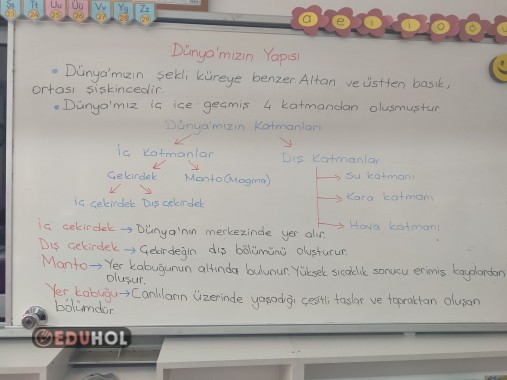 Şş Tt Uu Üü Vv Yy Zz
23 24 25 26 27 28 29
a e ı i o ö u
Dünya'mızın Yapısı
• Dünya'mızın şekli küreye benzer. Alttan ve üstten basık,
ortası şişkincedir.
• Dünya'mız iç içe geçmiş 4 katmandan oluşmuştur
Dünya'mızın Katmanları
İç Katmanlar
Dış Katmanlar
Çekirdek Manto (Magma)
İç çekirdek Dış çekirdek
Su katmanı
Kara katmanı
Hava katmanı
İç çekirdek → Dünya'nın merkezinde yer alır.
Dış çekirdek → Çekirdeğin dış bölümünü oluşturur.
Manto → Yer kabuğunun altında bulunur. Yüksek sıcaklık sonucu erimiş kayalardan
oluşur.
Yer kabuğu → Canlıların üzerinde yaşadığı çeşitli taşlar ve topraktan oluşan
bölümdür.
EDUHOL